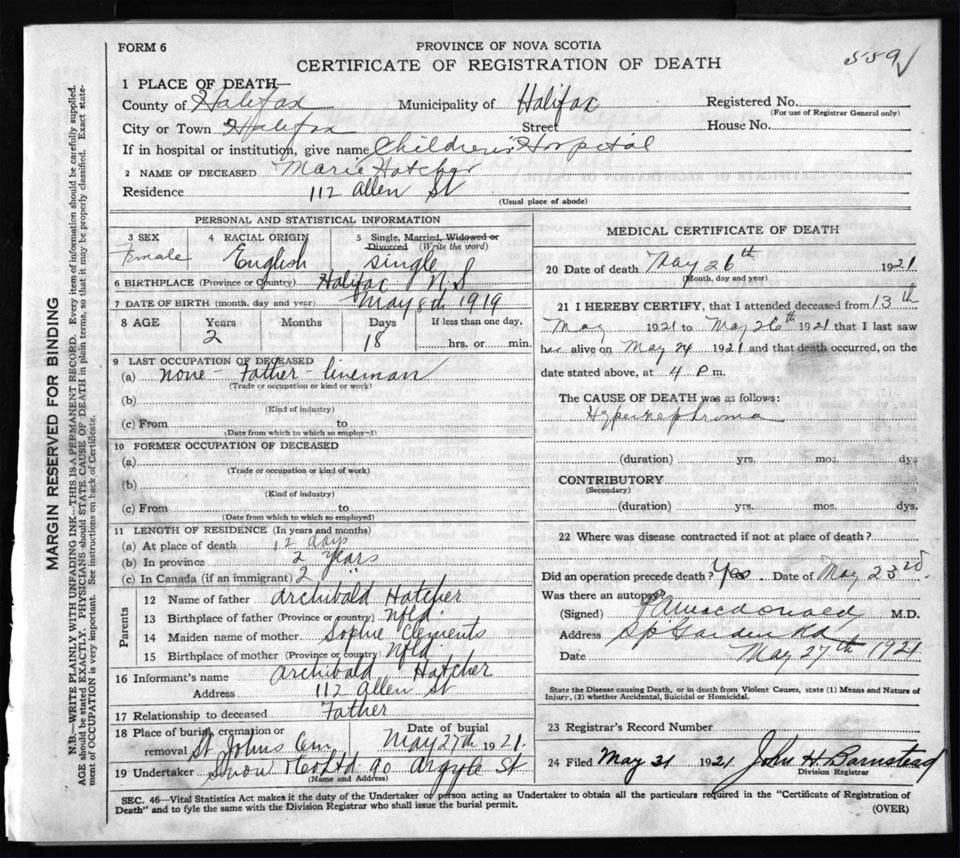 FORM 6
PROVINCE OF NOVA SCOTIA
559
CERTIFICATE OF REGISTRATION OF DEATH
1 PLACE OF DEATH—
County of Halifax Municipality of Halifax Registered No.
(For use of Registrar General only)
City or Town Halifax Street House No.
If in hospital or institution, give name Children's Hospital
2 NAME OF DECEASED Marie Hatcher
Residence 112 Allen St
(Usual place of abode)
MARGIN RESERVED FOR BINDING
N.B.—WRITE PLAINLY WITH UNFADING INK—THIS IS A PERMANENT RECORD. Every item of information should be carefully supplied.
AGE should be stated EXACTLY. PHYSICIANS should STATE CAUSE OF DEATH in plain terms, so that it may be properly classified. Exact state-
ment of OCCUPATION is very important. See instructions on back of Certificate.
PERSONAL AND STATISTICAL INFORMATION
3 SEX
Female
4 RACIAL ORIGIN
English
5 Single, Married, Widowed or
Divorced (Write the word)
single
6 BIRTHPLACE (Province or Country) Halifax N.S
7 DATE OF BIRTH (month, day and year) May 8th 1919
8 AGE Years Months Days If less than one day,
2 18 hrs. or min.
9 LAST OCCUPATION OF DECEASED
(a) none - Father - lineman
(Trade or occupation or kind or work)
(b)
(Kind of industry)
(c) From to
(Date from which to which so employed)
10 FORMER OCCUPATION OF DECEASED
(a)
(Trade or occupation or kind of work)
(b)
(Kind of industry)
(c) From to
(Date from which to which so employed)
11 LENGTH OF RESIDENCE (In years and months)
(a) At place of death 12 days
(b) In province 2 years
(c) In Canada (if an immigrant) 2
Parents
12 Name of father Archibald Hatcher
13 Birthplace of father (Province or country) Nfld
14 Maiden name of mother Sophie Clements
15 Birthplace of mother (Province or country Nfld
16 Informant's name Archibald Hatcher
Address 112 Allen St
17 Relationship to deceased Father
18 Place of burial, cremation or Date of burial
removal St Johns Cem May 27th 1921
19 Undertaker Snow & Co Ltd 90 Argyle St
(Name and Address)
MEDICAL CERTIFICATE OF DEATH
20 Date of death May 26th 1921
(Month, day and year)
21 I HEREBY CERTIFY, that I attended deceased from 13th
May 1921 to May 26th 1921 that I last saw
her alive on May 24 1921 and that death occurred, on the
date stated above, at 4 P.m.
The CAUSE OF DEATH was as follows:
Hypernephroma
(duration) yrs. mos. dys
CONTRIBUTORY
(Secondary)
(duration) yrs. mos. dys.
22 Where was disease contracted if not at place of death?
Did an operation precede death? Yes Date of May 23rd
Was there an autopsy
(Signed) Macdonald M.D.
Address Sp Garden Rd
Date May 27th 1921
State the Disease causing Death, or in death from Violent Causes, state (1) Means and Nature of
Injury, (2) whether Accidental, Suicidal or Homicidal.
23 Registrar's Record Number
24 Filed May 31 1921 John H. Barnstead
Division Registrar
SEC. 46—Vital Statistics Act makes it the duty of the Undertaker or person acting as Undertaker to obtain all the particulars required in the "Certificate of Registration of
Death" and to fyle the same with the Division Registrar who shall issue the burial permit.
(OVER)